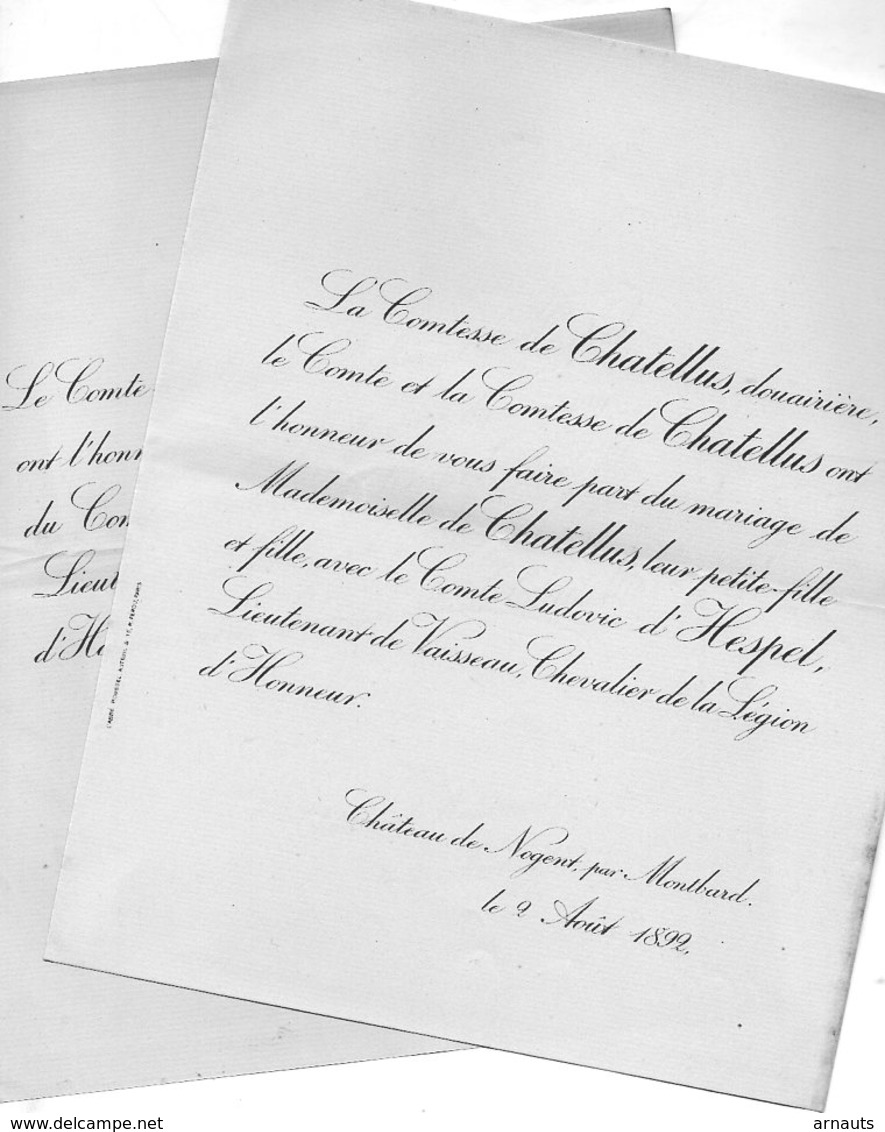 La Comtesse de Chatellus, douairière,
le Comte et la Comtesse de Chatellus ont
l'honneur de vous faire part du mariage de
Mademoiselle de Chatellus, leur petite-fille
et fille, avec le Comte Ludovic d'Hespel,
Lieutenant de Vaisseau, Chevalier de la Légion
d'Honneur.
Château de Nogent, par Montbard.
le 2 Août 1892.
Le Comte
ont l'hon
du Com
Lieut
d'H
www.delcampe.net
arnauts